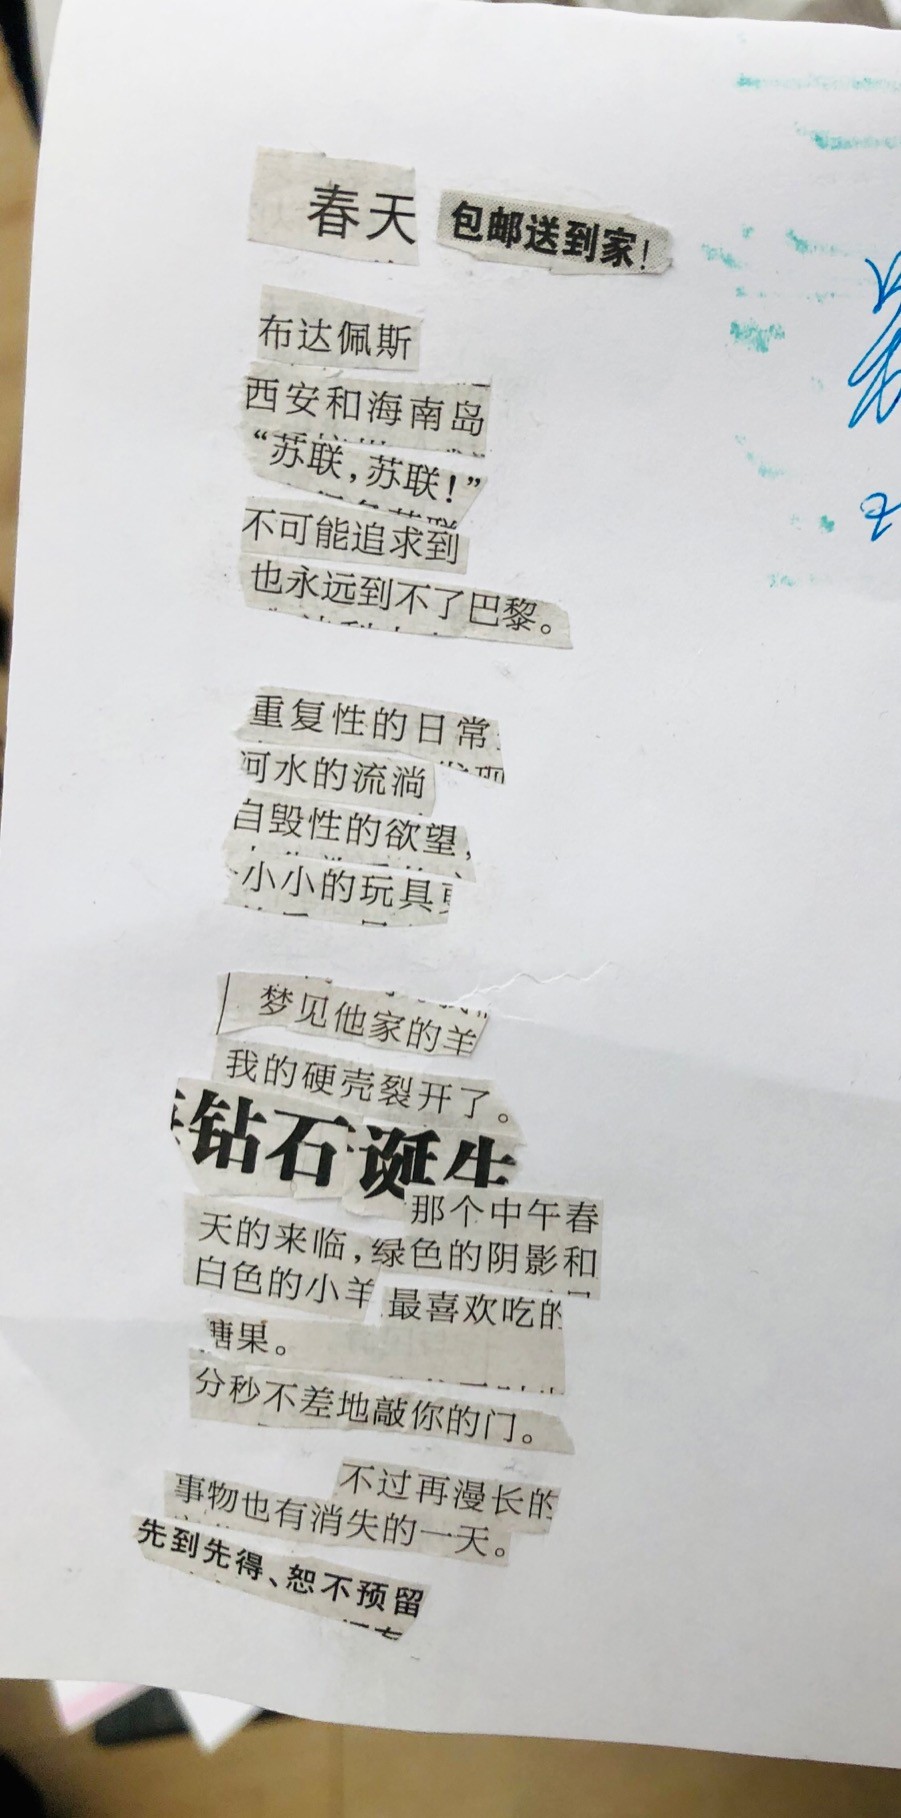 春天 包邮送到家！
布达佩斯
西安和海南岛
“苏联，苏联！”
不可能追求到
也永远到不了巴黎。
重复性的日常
河水的流淌
自毁性的欲望，
小小的玩具
梦见他家的羊
我的硬壳裂开了。
钻石诞生
那个中午春
天的来临，绿色的阴影和
白色的小羊 最喜欢吃的
糖果。
分秒不差地敲你的门。
不过再漫长的
事物也有消失的一天。
先到先得、恕不预留